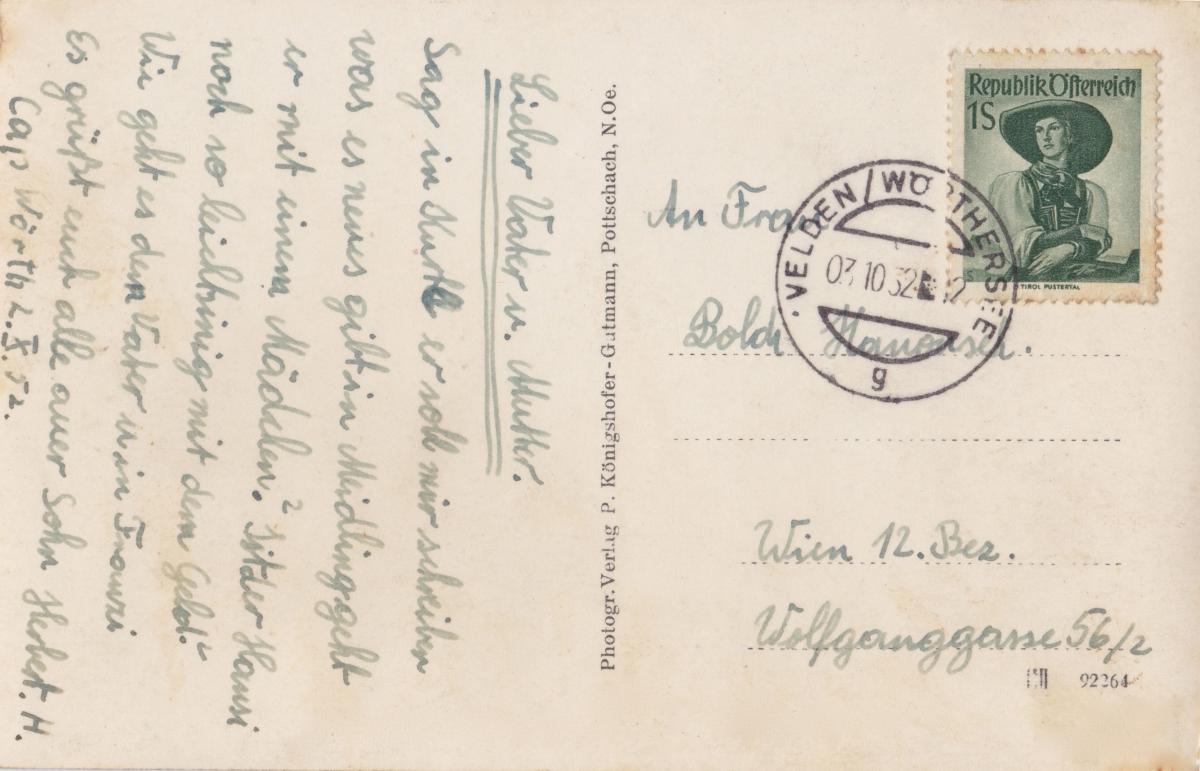 Lieber Vater u. Mutter.
Sag in Kurtl er soll mir schreiben
was es neues gibt in Meidling geht
er mit einem Mädchen? Ist der Hansi
noch so leichtsinig mit dem Geld?
Wie geht es dem Vater u in Franzi
Es grüßt euch alle auer Sohn Herbert. H.
Cap Wörth 2. X. 52.
Photogr. Verlag P. Königshofer-Gutmann, Pottschach, N.Oe.
Republik Österreich
1S
TIROL PUSTERTAL
VELDEN/WÖRTHERSEE
03 10 52
g
An Frau
Wien 12. Bez.
Wolfganggasse 56/2
92264